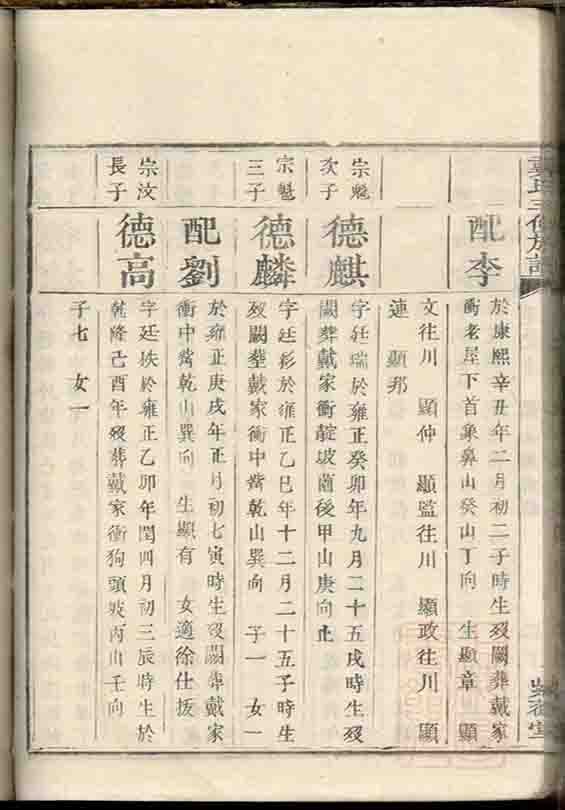 配李
於康熙辛丑年二月初二子時生歿闕葬戴家
衝老屋下首象鼻山癸山丁向 生顯章 顯
文往川 顯仲 顯監往川 顯政往川 顯
連 顯邦
宗魁
次子
德麒
字廷瑞於雍正癸卯年九月二十五戌時生歿
闕葬戴家衝靛坡薗後甲山庚向止
宗魁
三子
德麟
字廷彩於雍正乙巳年十二月二十五子時生
歿闕塟戴家衝中嘴乾山巽向 子一 女一
配劉
於雍正庚戌年正月初七寅時生歿闕葬戴家
衝中嘴乾山巽向 生顯有 女適徐仕拔
宗汶
長子
德高
字廷於雍正乙卯年閏四月初三辰時生於
乾隆己酉年歿葬戴家衝狗頭坡丙山壬向
子七 女一